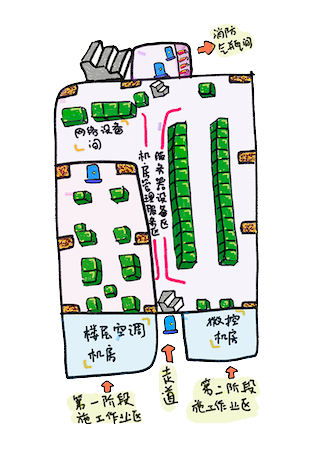 消防
气瓶间
网络设备
间
机房管理服务区
服务器设备区
楼层空调
机房
微控
机房
第一阶段
施工作业区
走道
第二阶段
施工作业区